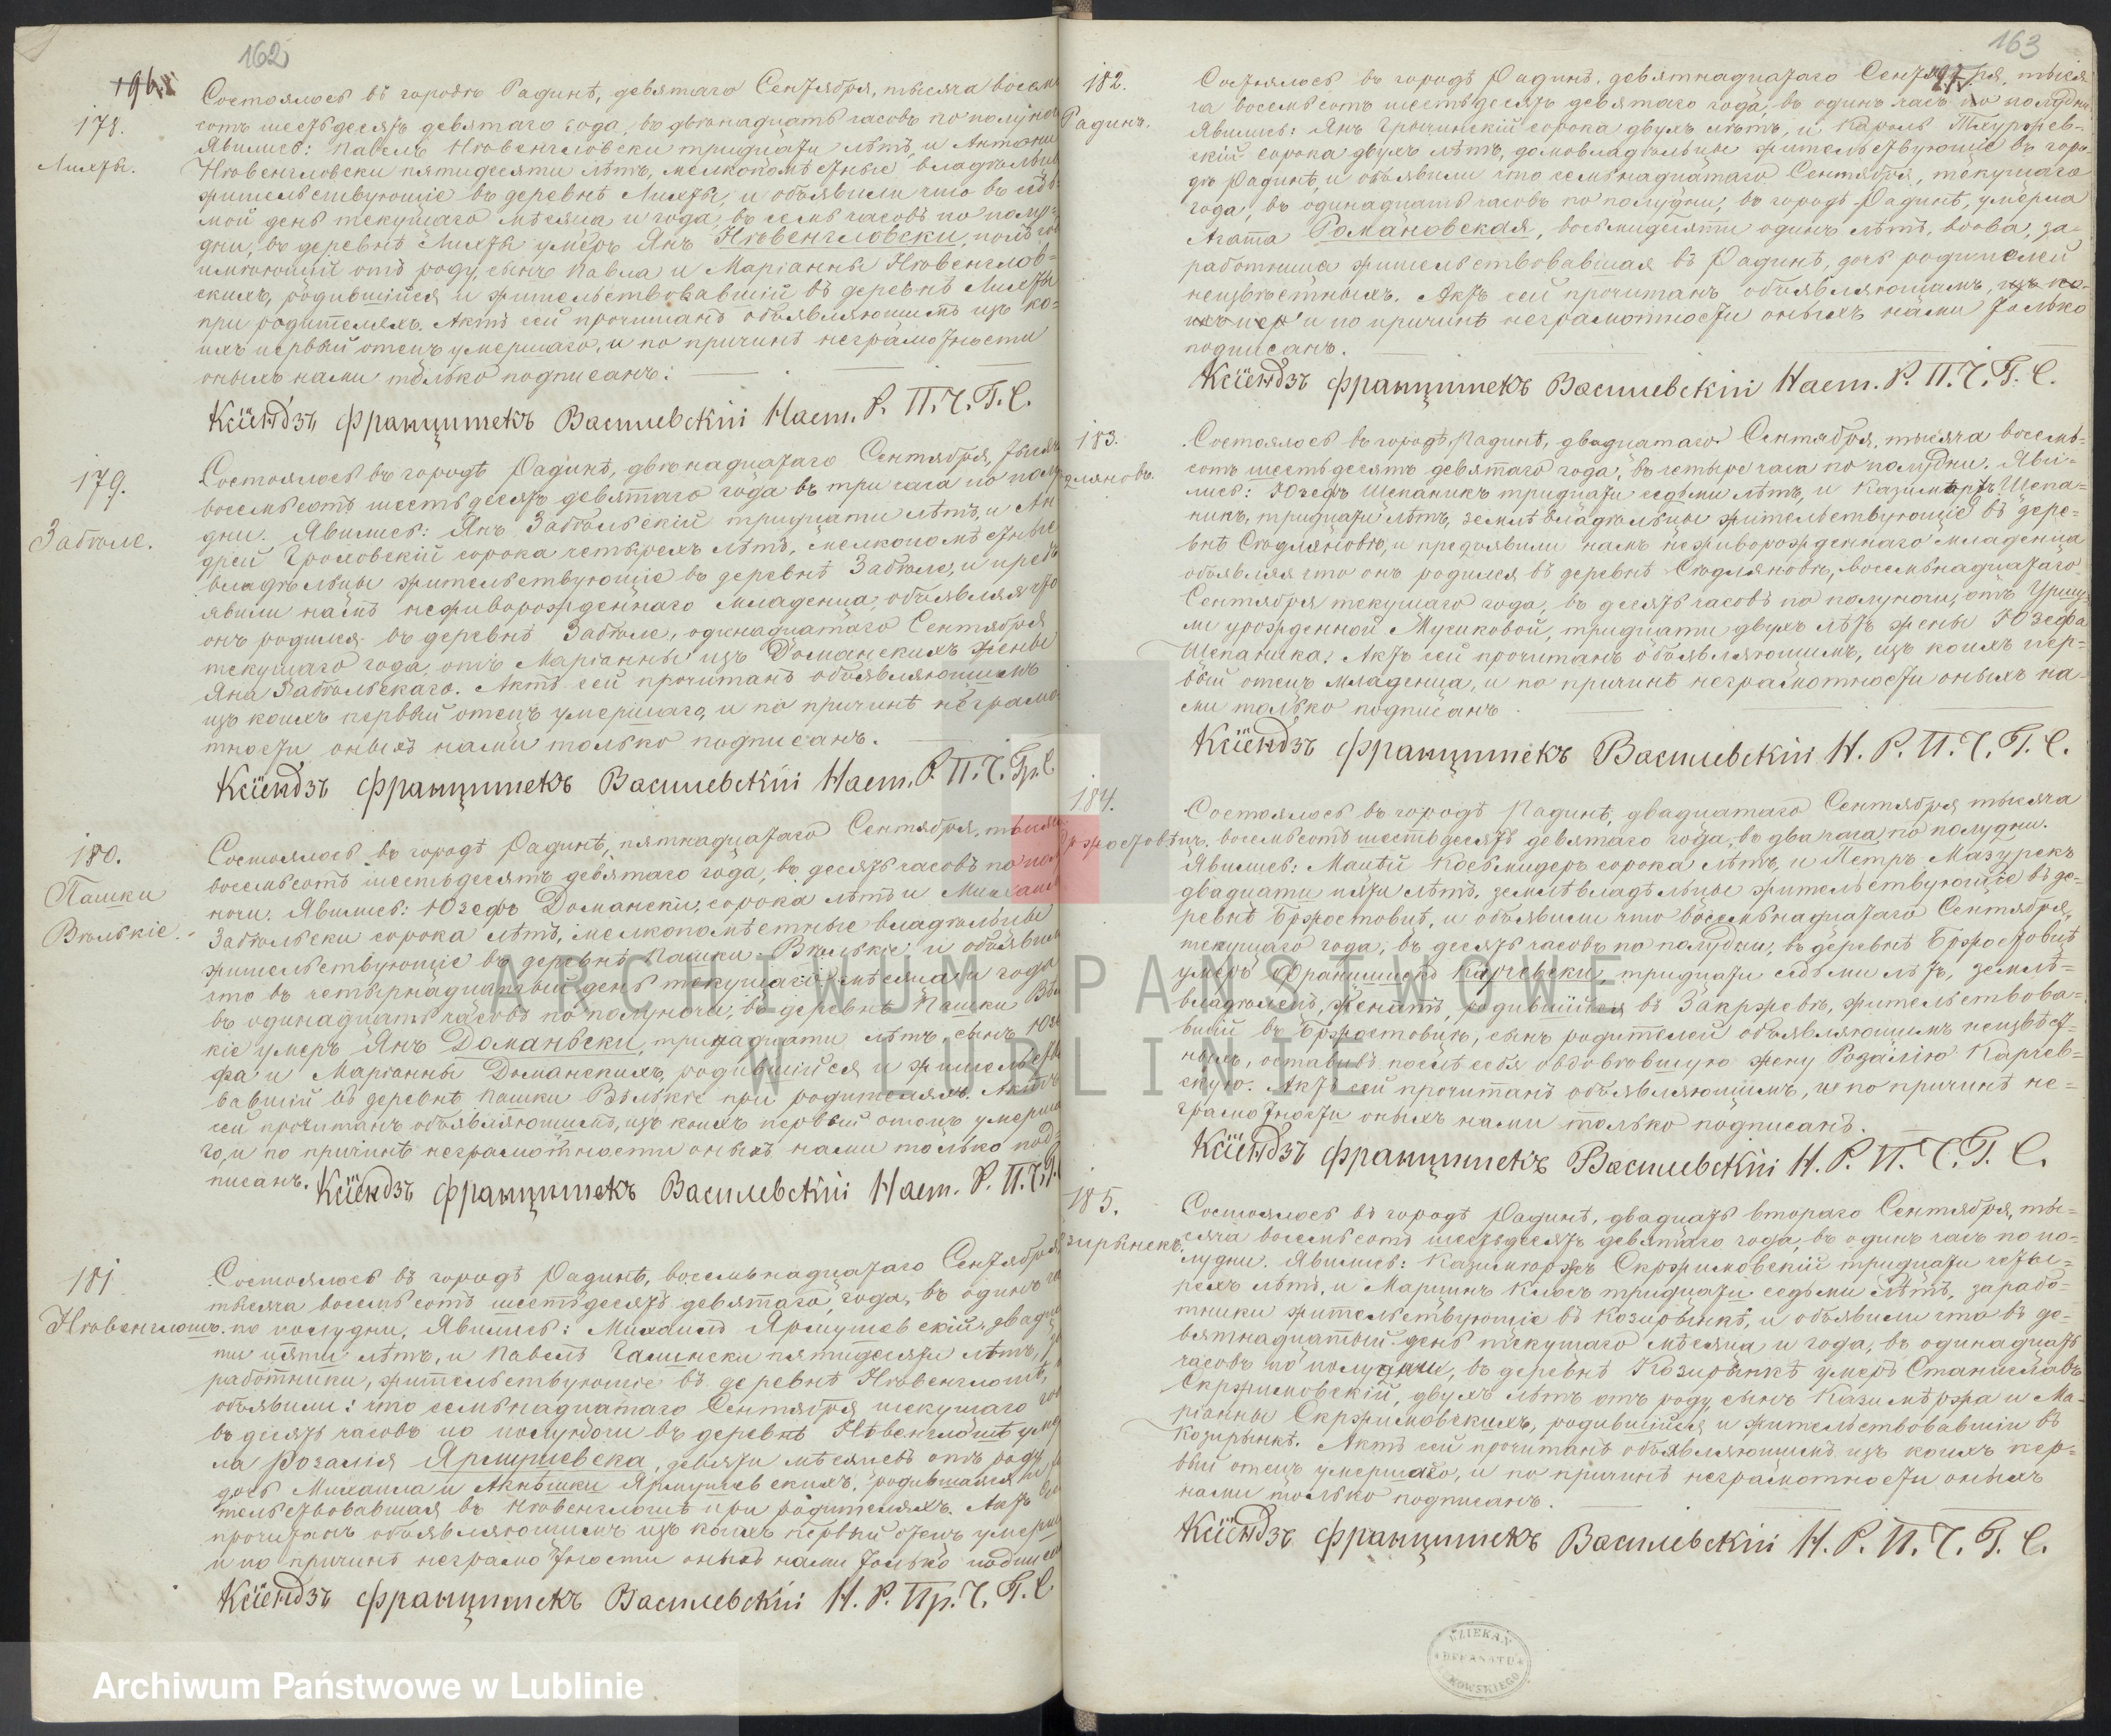 162
178.
Лихты.
Состоялось въ городѣ Радинѣ, девятаго Сентября, тысяча восемь
сотъ шестьдесятъ девятаго года, въ двѣнадцать часовъ по полуно
Явились: Павелъ Нѣвенгловски тридцати лѣтъ, и Антони
Нѣвенгловски пятидесяти лѣтъ, мелкопомѣстные владѣльцы
жительствующіе въ деревнѣ Лихты, и объявили что въ седь
мой день текущаго мѣсяца и года, въ семь часовъ по полу-
дни, въ деревнѣ Лихты умеръ Янъ Нѣвенгловски, полъ го
имѣющій отъ роду, сынъ Павла и Маріанны Нѣвенглов-
скихъ, родившійся и жительствовавшій въ деревнѣ Лихты
при родителяхъ. Актъ сей прочитанъ объявляющимъ изъ ко-
ихъ первый отецъ умершаго, и по причинѣ неграмотности
оныхъ нами только подписанъ:
Ксіендзъ Францишекъ Василевскіи Наст. Р. П. Ч. Г. С.
179.
Заболе.
Состоялось въ городѣ Радинѣ, двѣнадцатаго Сентября, тысяч
восемьсотъ шестьдесятъ девятаго года въ три часа по полу
дни. Явились: Янъ Забѣльскій тридцати лѣтъ, и Ан
дрей Громовскій сорока четырехъ лѣтъ, мелкопомѣстные
владѣльцы жительствующіе въ деревнѣ Заболе, и предъ
явили намъ неживорожденнаго младенца, объявляя что
онъ родился въ деревнѣ Заболе, одинадцатаго Сентября
текущаго года, отъ Маріанны изъ Доманскихъ жены
Яна Забѣльскаго. Актъ сей прочитанъ объявляющимъ
изъ коихъ первый отецъ умершаго, и по причинѣ неграмо
тности оныхъ нами только подписанъ.
Ксіендзъ Францишекъ Василевскіи Наст. Р. П. Ч. Гр. С
180.
Пашки
Вѣлькіе.
Состоялось въ городѣ Радинѣ, пятнадцатаго Сентября, тысяч
восемьсотъ шестьдесятъ девятаго года, въ десять часовъ по пол
ночи. Явились: Юзефъ Доманскіи, сорока лѣтъ и Михаилъ
Забѣльски сорока лѣтъ, мелкопомѣстные владѣльцы
жительствующіе въ деревнѣ Пашки Вѣлькіе, и объявили
что въ четырнадцатый день текущаго мѣсяца и года
въ одинадцать часовъ по полуночи, въ деревнѣ Пашки Вѣл
кіе умеръ Янъ Доманьски, тринадцати лѣтъ, сынъ Юзе
фа и Маріанны Доманскихъ, родившійся и жительство
вавшій въ деревнѣ Пашки Вѣлькіе при родителяхъ. Актъ
сей прочитанъ объявляющимъ, изъ коихъ первый отецъ умерша
го, и по причинѣ неграмотности оныхъ нами только под-
писанъ. Ксіендзъ Францишекъ Василевскіи Наст. Р. П. Ч. Г.
181
Нѣвенглошъ.
Состоялось въ городѣ Радинѣ, восемьнадцатаго Сентября
тысяча восемьсотъ шестьдесятъ девятаго года, въ одинъ ча
по полудни, Явились: Михаилъ Ярмушевскій двадца
ти пяти лѣтъ, и Павелъ Галински пятидесяти лѣтъ, за
работники, жительствующіе въ деревнѣ Нѣвенглошѣ,
объявили: что семьнадцатаго Сентября текущаго го
въ десять часовъ по полуночи въ деревнѣ Нѣвенглошѣ умер
ла Розалія Ярмушевска, девяти мѣсяцевъ отъ роду
дочь Михаила и Агнѣшки Ярмушевскихъ, родившаяся и жи
тельствовавшая въ Нѣвенглошѣ при родителяхъ. Актъ сей
прочитанъ объявляющимъ изъ коихъ первый отецъ умерш
и по причинѣ неграмотности оныхъ нами только подписа
Ксіендзъ Францишекъ Василевскіи Н. Р. Пр. Ч. Г. С
163
182.
Радинъ.
Состоялось въ городѣ Радинѣ, девятнадцатаго Сентября, тыся
ча восемьсотъ шестьдесятъ девятаго года, въ одинъ часъ по полудни
Явились: Янъ Грочинскій сорока двухъ лѣтъ, и Кароль Тхуржев-
скій сорока двухъ лѣтъ, домовладѣльцы жительствующіе въ горо-
дѣ Радинѣ, и объявили что семьнадцатаго Сентября, текущаго
года, въ одинадцать часовъ по полудни, въ городѣ Радинѣ, умерла
Агата Романовская, восьмидесяти одинъ лѣтъ, вдова, за-
работница жительствовавшая въ Радинѣ, дочь родителей
неизвѣстныхъ. Актъ сей прочитанъ объявляющимъ, изъ ко-
ихъ пер и по причинѣ неграмотности оныхъ нами только
подписанъ.
Ксіендзъ Францишекъ Василевскіи Наст. Р. П. Ч. Г. С.
183.
дляновъ.
Состоялось въ городѣ Радинѣ, двадцатаго Сентября, тысяча восемь-
сотъ шестьдесятъ девятаго года, въ четыре часа по полудни. Яви-
лись: Юзефъ Щепаникъ тридцати седьми лѣтъ, и Казимѣржъ Щепа-
никъ, тридцати лѣтъ, землѣвладѣльцы жительствующіе въ дере-
внѣ Сѣдляновѣ, и предъявили намъ неживорожденнаго младенца
объявляя что онъ родился въ деревнѣ Сѣдляновѣ, восемьнадцатаго
Сентября текущаго года, въ десять часовъ по полуночи, отъ Уршу
ли урожденной Мучиковой, тридцати двухъ лѣтъ жены Юзефа
Щепаника. Актъ сей прочитанъ объявляющимъ, изъ коихъ пер-
вый отецъ младенца, и по причинѣ неграмотности оныхъ на-
ми только подписанъ.
Ксіендзъ Францишекъ Василевскіи Н. Р. П. Ч. Г. С.
184.
ржостовѣцъ.
Состоялось въ городѣ Радинѣ, двадцатаго Сентября тысяча
восемьсотъ шестьдесятъ девятаго года, въ два часа по полудни.
Явились: Мацѣй Косьмидеръ сорока лѣтъ, и Петръ Мазурекъ
двадцати пяти лѣтъ, землѣвладѣльцы жительствующіе въ де-
ревнѣ Бржостовцѣ, и объявили что восемьнадцатаго Сентября,
текущаго года, въ десять часовъ по полудни, въ деревнѣ Бржостовцѣ
умеръ Францишекъ Карчевски, тридцати седьми лѣтъ, землѣ-
владѣлецъ, женатъ, родившійся въ Закржевѣ, жительствова-
вшій въ Бржостовцѣ, сынъ родителей объявляющимъ неизвѣст-
ныхъ, оставивъ послѣ себя овдовѣвшую жену Розалію Карчев-
скую. Актъ сей прочитанъ объявляющимъ, и по причинѣ не-
грамотности оныхъ нами только подписанъ.
Ксіендзъ Францишекъ Василевскіи Н. Р. П. Ч. Г. С.
185.
зирынекъ.
Состоялось въ городѣ Радинѣ, двадцать втораго Сентября, ты-
сяча восемьсотъ шестьдесятъ девятаго года, въ одинъ часъ по по-
лудни. Явились: Казимѣржъ Скржимовскій тридцати четы-
рехъ лѣтъ, и Марцинъ Клось тридцати седьми лѣтъ, зарабо-
тники жительствующіе въ Козирынкѣ, и объявили что въ де-
вятнадцатый день текущаго мѣсяца и года, въ одинадцать
часовъ по полудни, въ деревнѣ Козирынкѣ умеръ Станиславъ
Скржимовскій, двухъ лѣтъ отъ роду, сынъ Казимѣржа и Ма-
ріанны Скржимовскихъ, родившійся и жительствовавшій въ
Козирынкѣ. Актъ сей прочитанъ объявляющимъ изъ коихъ пер-
вый отецъ умершаго, и по причинѣ неграмотности оныхъ
нами только подписанъ.
Ксіендзъ Францишекъ Василевскіи Н. Р. П. Ч. Г. С.
DZIEKAN
ARCHIWUM PAŃSTWOWE
W LUBLINIE
Archiwum Państwowe w Lublinie